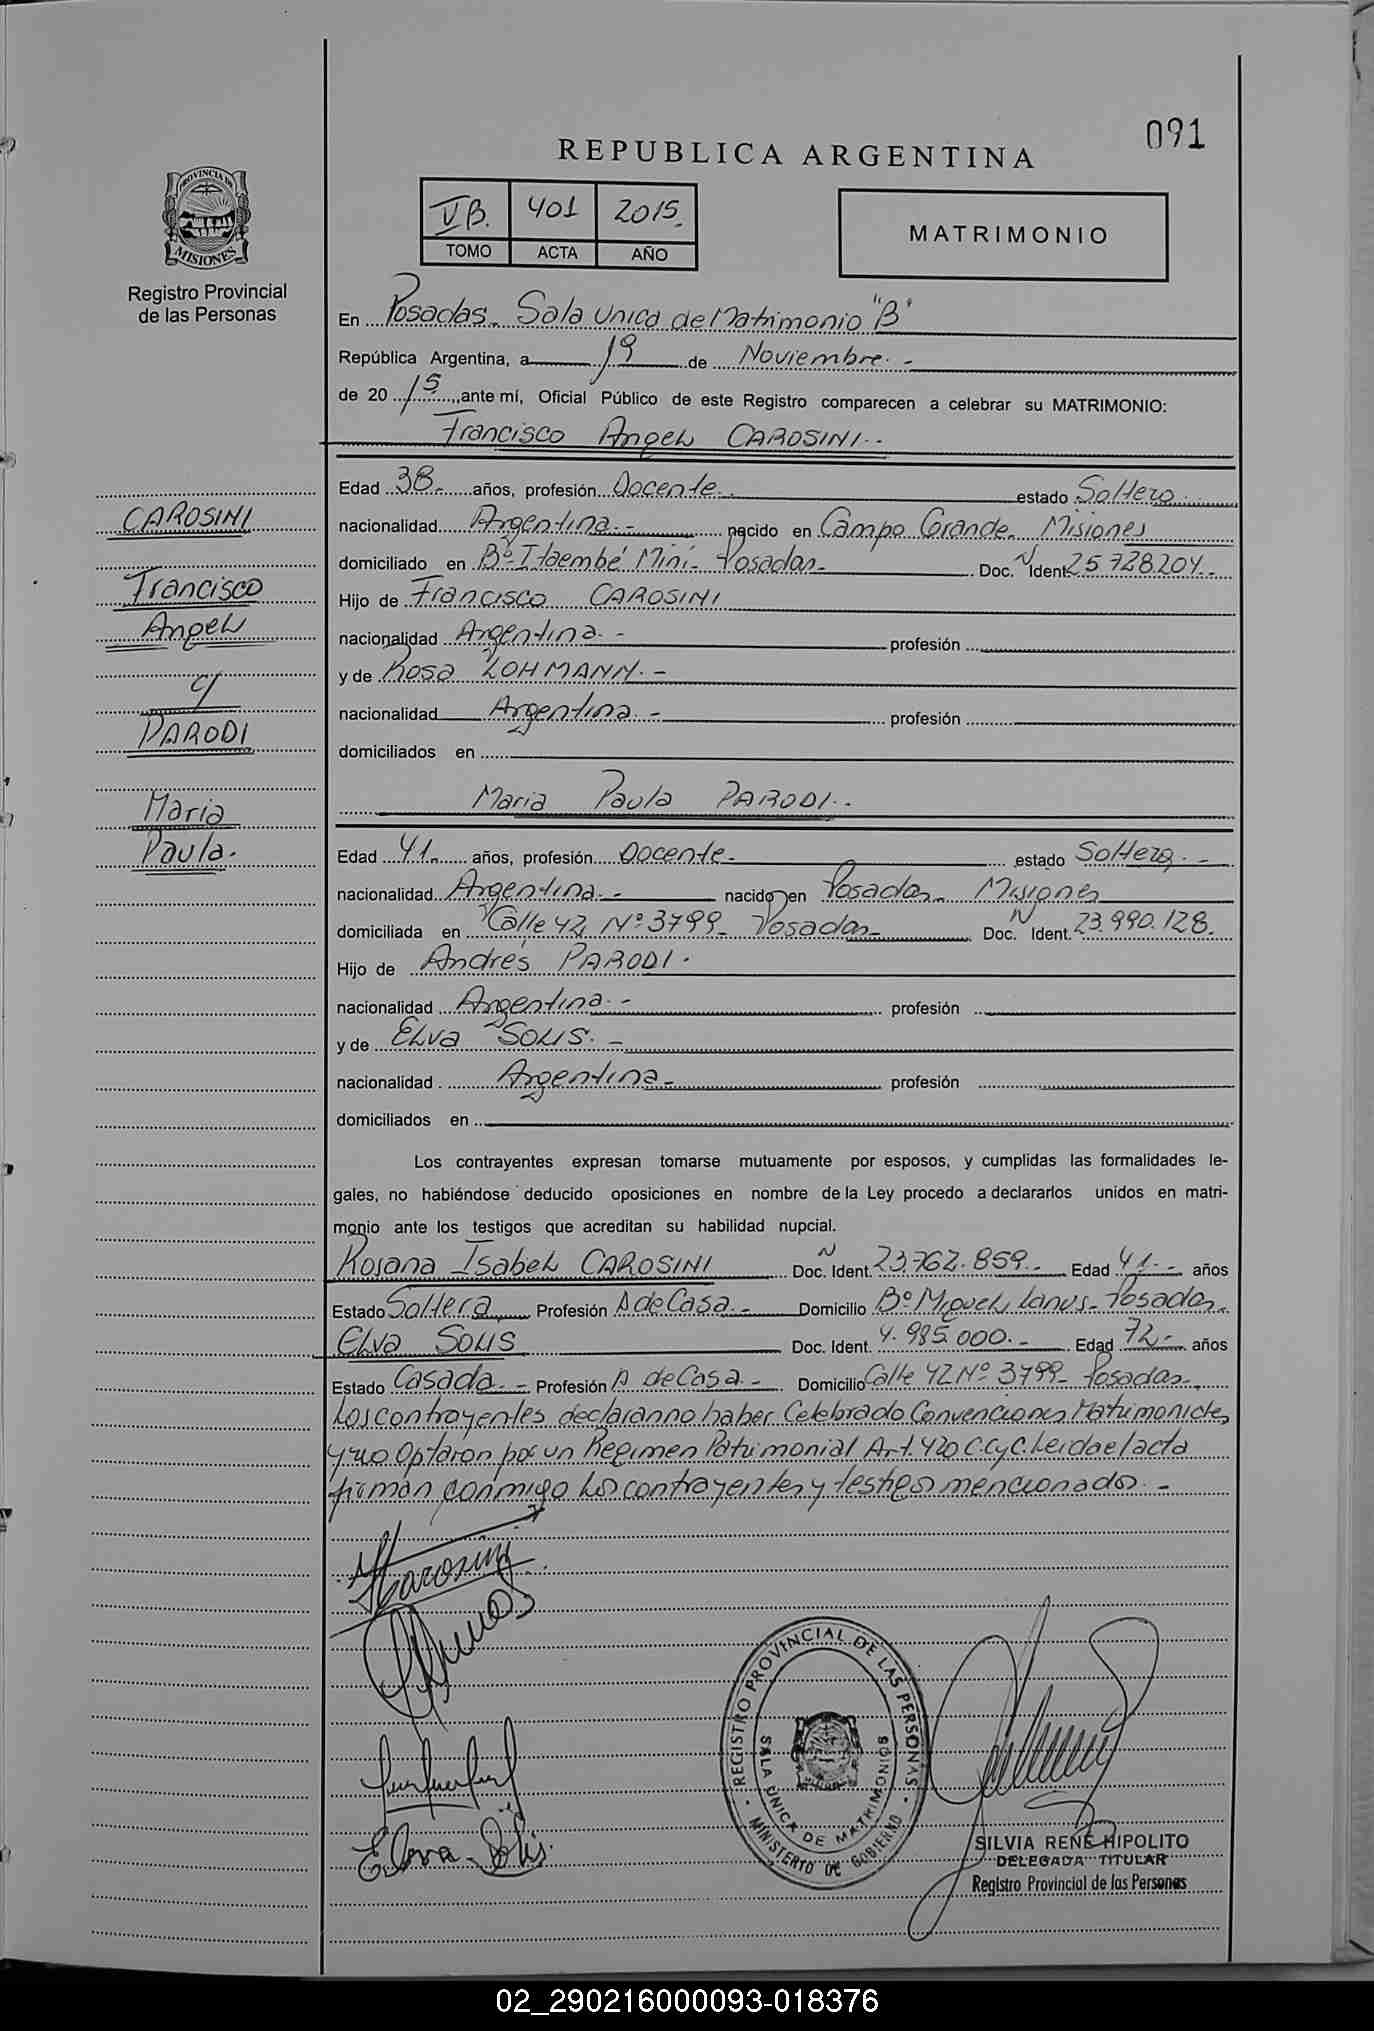 091
REPUBLICA ARGENTINA
PROVINCIA DE
MISIONES
Registro Provincial
de las Personas
II B. 401 2015.
TOMO ACTA AÑO
MATRIMONIO
En Posadas. Sala Unica de Matrimonio "B"
República Argentina, a 19 de Noviembre. -
de 20 15, ante mí, Oficial Público de este Registro comparecen a celebrar su MATRIMONIO:
Francisco Angel CAROSINI. -
Edad 38. años, profesión Docente. estado Soltero.
nacionalidad Argentina. - nacido en Campo Grande. Misiones
domiciliado en Bº Itaembé Miní - Posadas - Doc. N Ident 25.728.204. -
Hijo de Francisco CAROSINI
nacionalidad Argentina. - profesión
y de Rosa LOHMANN. -
nacionalidad Argentina. - profesión
domiciliados en
Maria Paula PARODI. -
Edad 41. años, profesión Docente. estado Soltera. -
nacionalidad Argentina. - nacido en Posadas - Misiones
domiciliada en Calle 42 Nº 3799 - Posadas - Doc. N Ident. 23.990.128.
Hijo de Andrés PARODI.
nacionalidad Argentina. - profesión
y de Elva SOLIS. -
nacionalidad Argentina - profesión
domiciliados en
CAROSINI
Francisco
Angel
c/
PARODI
Maria
Paula.
Los contrayentes expresan tomarse mutuamente por esposos, y cumplidas las formalidades le-
gales, no habiéndose deducido oposiciones en nombre de la Ley procedo a declararlos unidos en matri-
monio ante los testigos que acreditan su habilidad nupcial.
Rosana Isabel CAROSINI Doc. N Ident. 23.762.859. - Edad 41. - años
Estado Soltera Profesión A de Casa. - Domicilio Bº Miguel Lanus - Posadas.
Elva SOLIS Doc. Ident. 4.985.000. - Edad 72. - años
Estado Casada. - Profesión A de Casa - Domicilio Calle 42 Nº 3799 - Posadas.
Los contrayentes declaran no haber Celebrado Convenciones Matrimoniales
y no Optaron por un Regimen Patrimonial Art. 420 C.C y C. Leida el acta
firman conmigo los contrayentes y testigos mencionados. -
Elova Solis.
REGISTRO PROVINCIAL DE LAS PERSONAS
SALA UNICA DE MATRIMONIOS
MINISTERIO DE GOBIERNO
SILVIA RENE HIPOLITO
DELEGADA TITULAR
Registro Provincial de las Personas
02_290216000093-018376